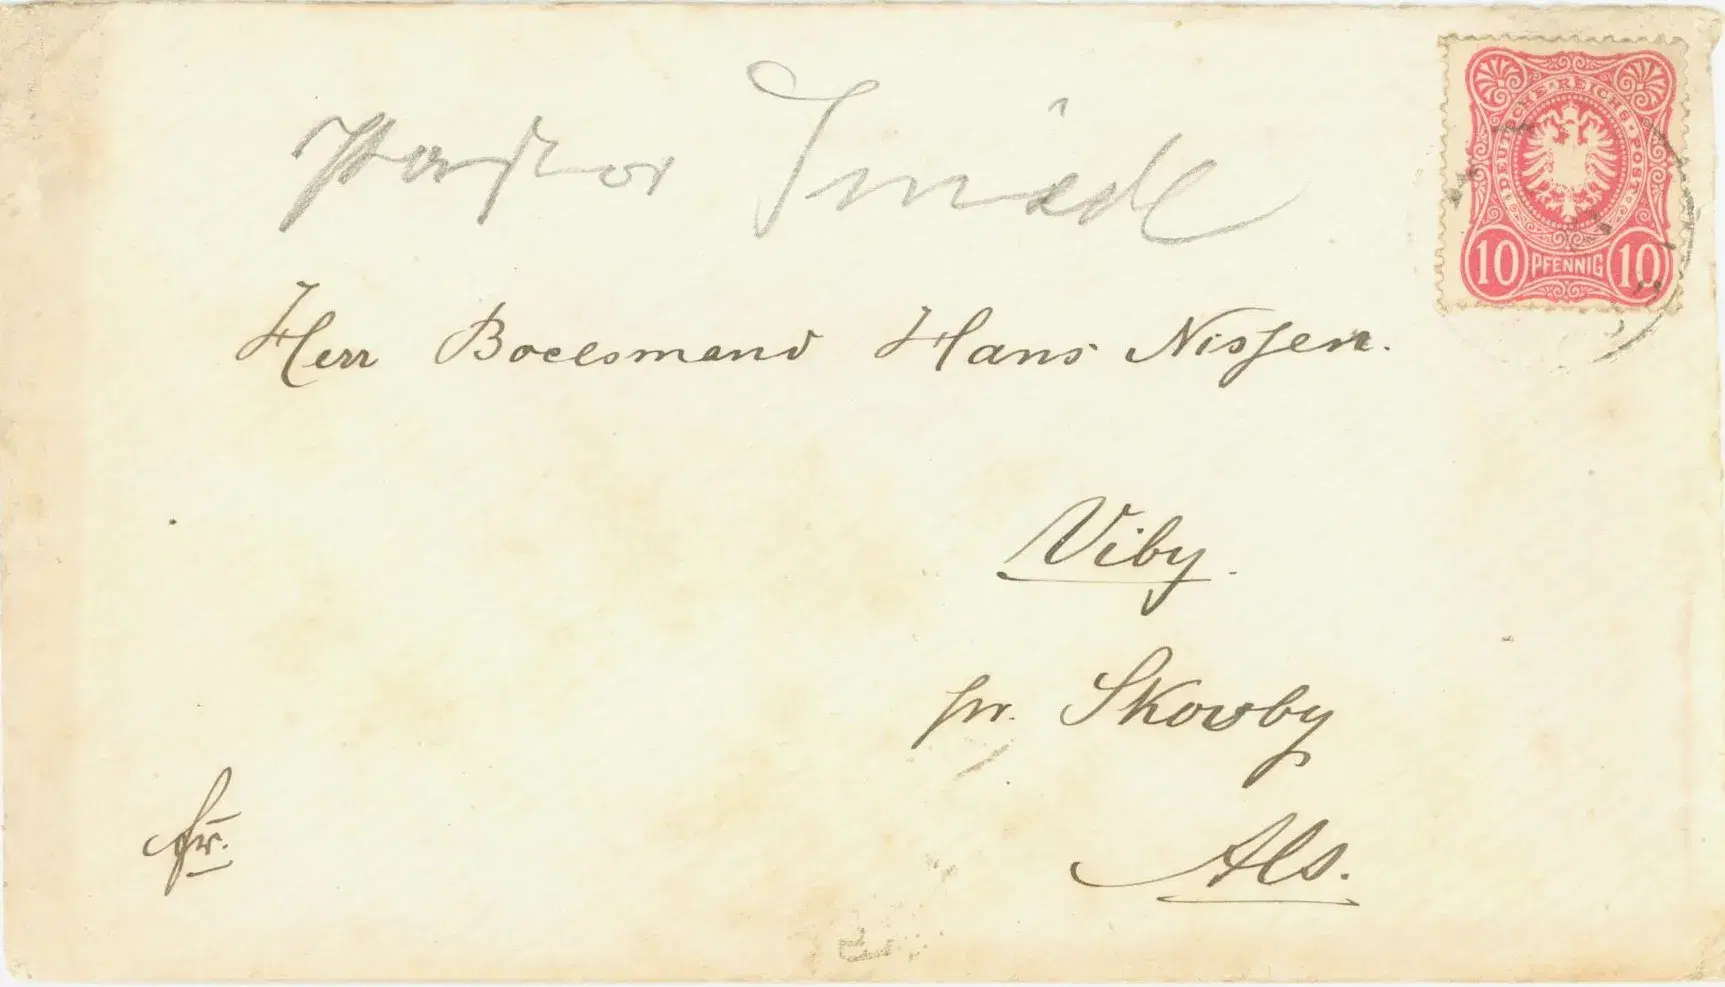 Pastor
DEUTSCHE·REICHS·POST
10 PFENNIG 10
Herr Boelsmand Hans Nissen.
Viby.
pr. Skowby
fr.
Als.